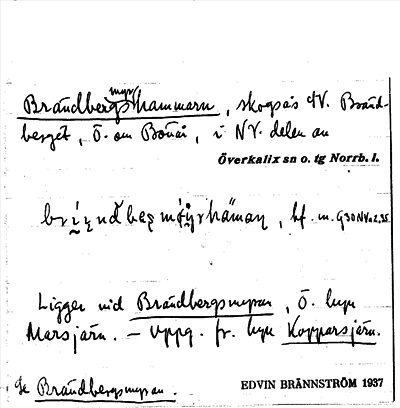 Brändbergsmyrhammarn, skogsås NV. Bränd-
berget, Ö. om Bönåi, i NV. delen av
Överkalix sn o. tg Norrb. l.
bf. m.
Ligger vid Brändbergsmyran, Ö. byn
Marsjärv. – Uppg. fr. byn Kopparsjärv.
Se Brändbergsmyran.
EDVIN BRÄNNSTRÖM 1937